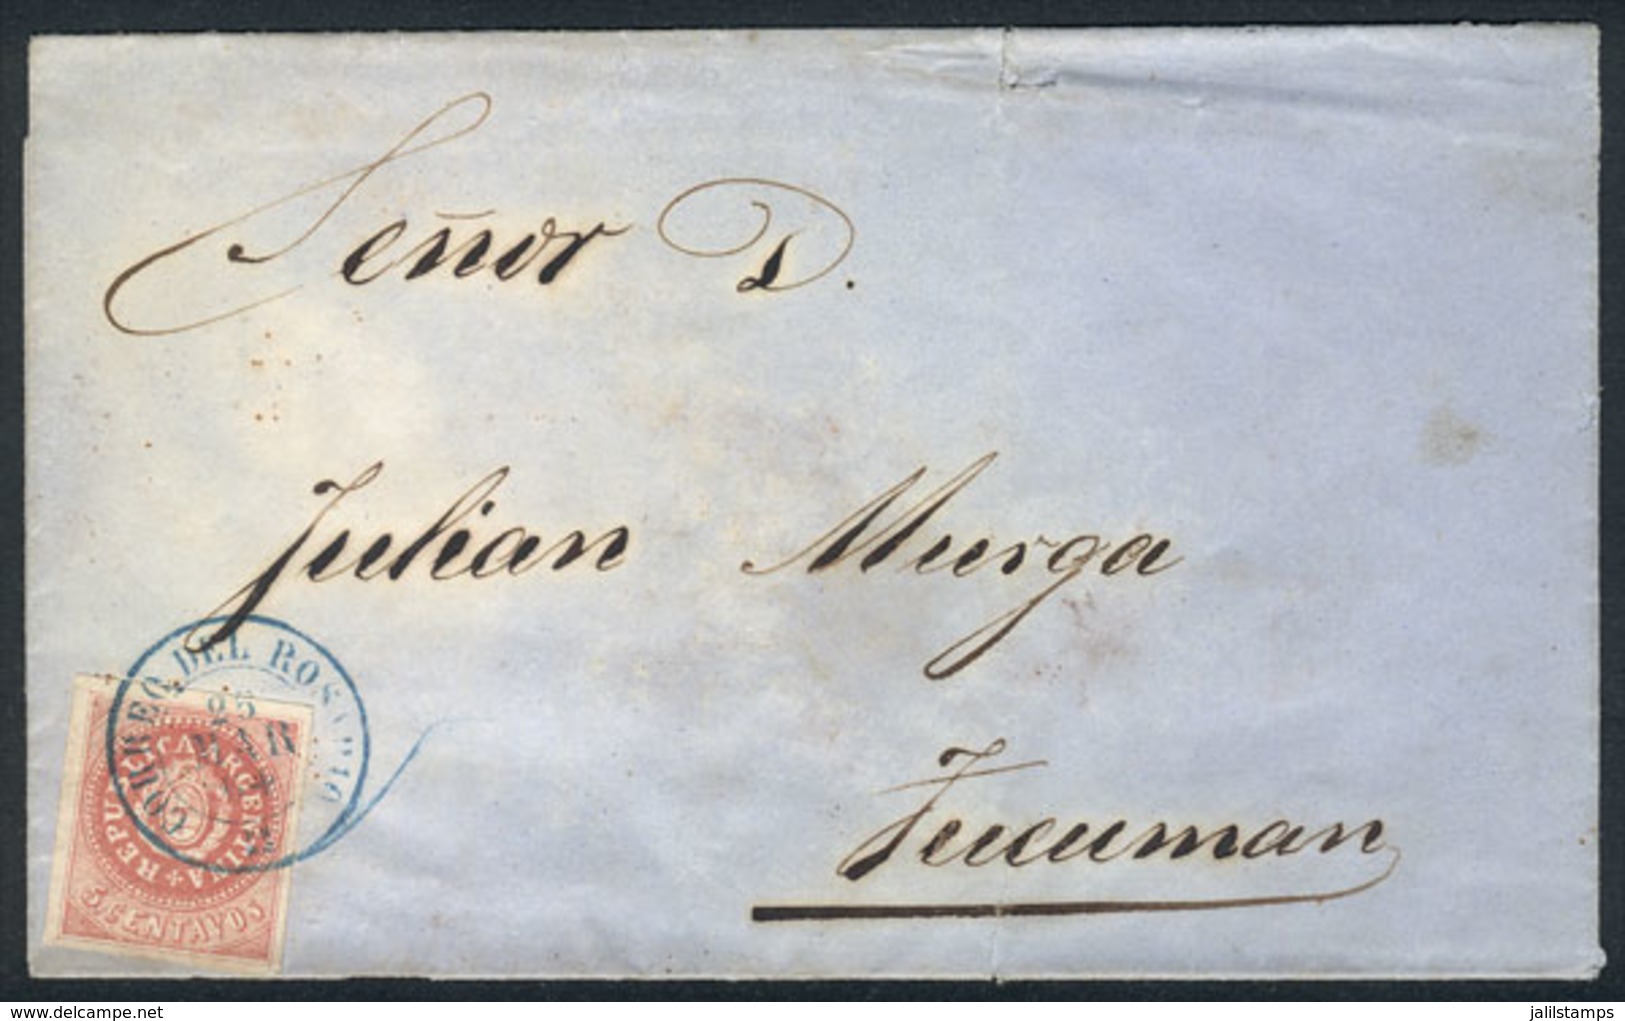 Señor D.
Julian Murga
Tucuman
CORREO DEL ROSARIO
25
MAR
REPUBLICA ARGENTINA
5 CENTAVOS
delcampe.net
jalilstamps